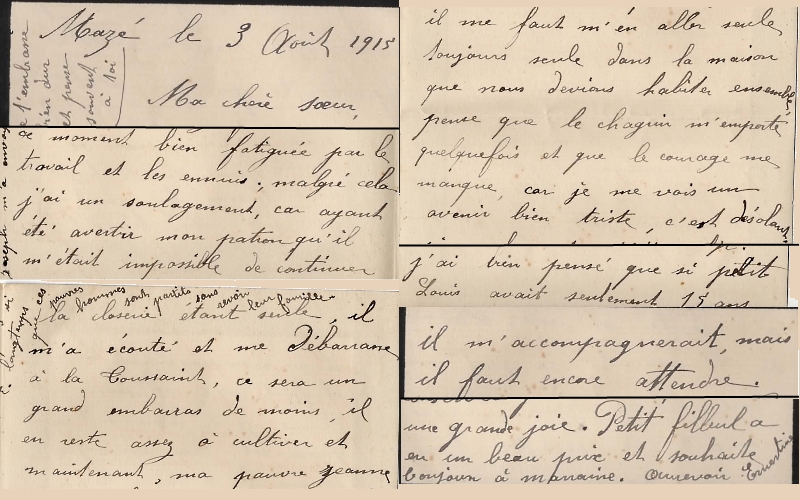 Mazé le 3 Août 1915
je t'embrasse
bien dur
et pense
souvent
à toi
Ma chère sœur,
ce moment bien fatiguée par le
travail et les ennuis, malgré cela
j'ai un soulagement, car ayant
été avertir mon patron qu'il
m'était impossible de continuer
la closerie étant seule, il
m'a écouté et me Débarrasse
à la Toussaint, ce sera un
grand embarras de moins, il
en reste assez à cultiver et
maintenant, ma pauvre Jeanne
que ces pauvres hommes sont partis sans revoir leur famille
longtemps
il me faut m'en aller seule
toujours seule dans la maison
que nous devions habiter ensemble,
pense que le chagrin m'emporte
quelquefois et que le courage me
manque, car je me vois un
avenir bien triste, c'est désolant
j'ai bien pensé que si petit
Louis avait seulement 15 ans
il m'accompagnerait, mais
il faut encore attendre.
une grande joie. Petit filleul a
eu un beau prix et souhaite
bonjour à marraine. Aurevoir
Ernestine